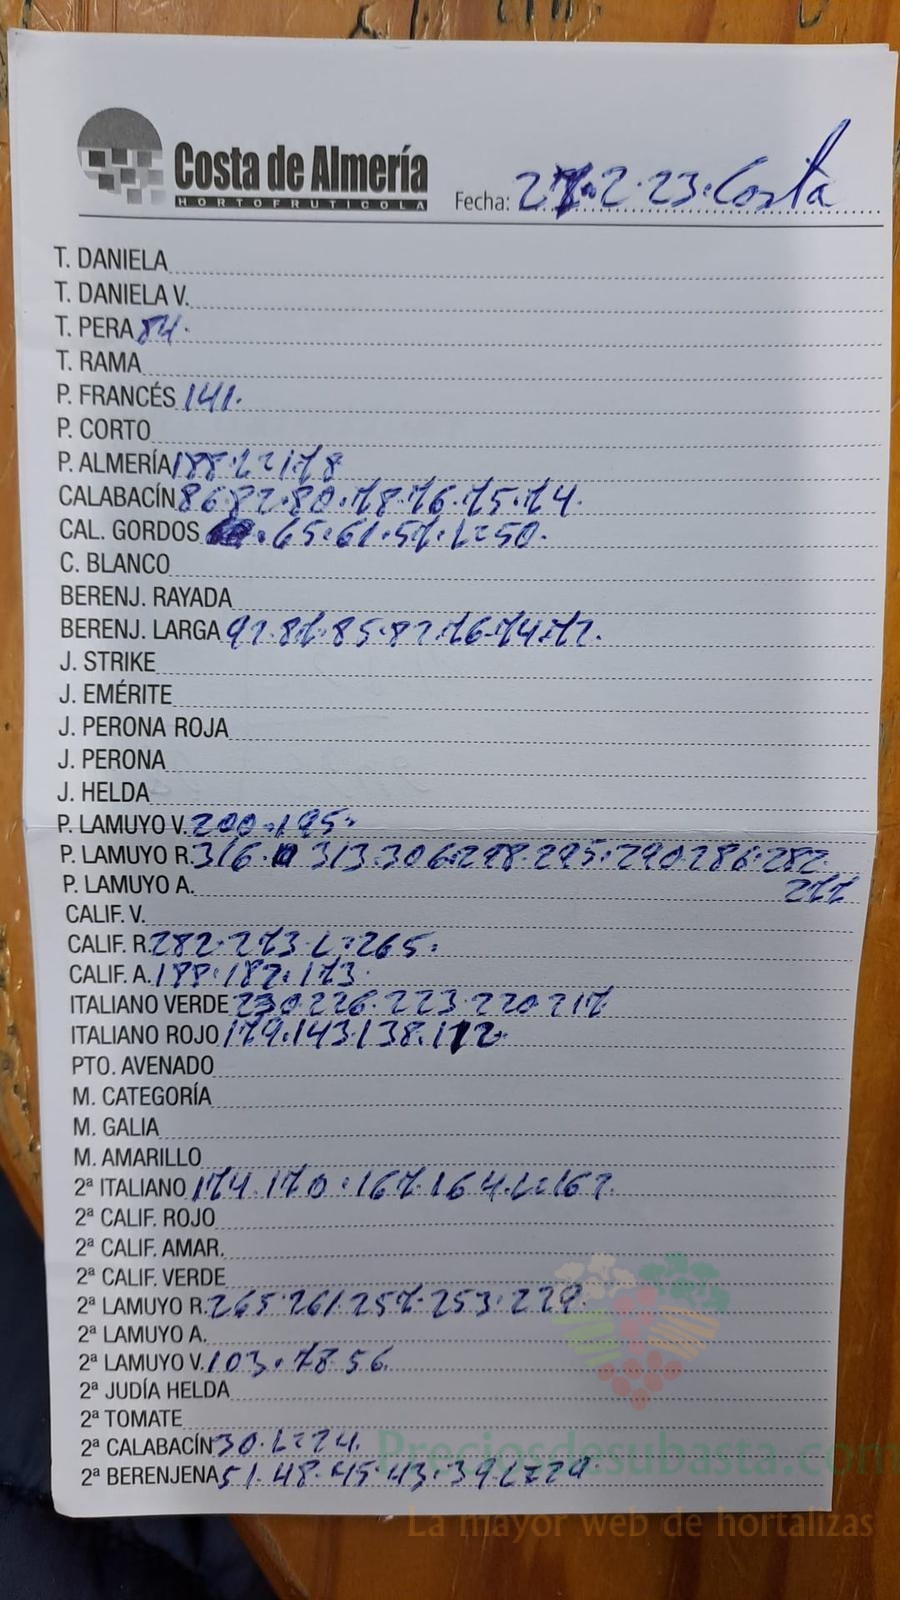 Costa de Almería
HORTOFRUTICOLA
Fecha: 27.2.23. Costa
T. DANIELA
T. DANIELA V.
T. PERA 84.
T. RAMA
P. FRANCÉS 141.
P. CORTO
P. ALMERÍA 188. L=178
CALABACÍN 86 82. 80. 78. 76. 75. 74.
CAL. GORDOS . 65. 61. 57. L=50.
C. BLANCO
BERENJ. RAYADA
BERENJ. LARGA 92. 87. 85. 82. 76. 74. 72.
J. STRIKE
J. EMÉRITE
J. PERONA ROJA
J. PERONA
J. HELDA
P. LAMUYO V. 200. 195.
P. LAMUYO R. 316. 313. 306. 298. 295. 290. 286. 282.
277
P. LAMUYO A.
CALIF. V.
CALIF. R. 282. 273. L=265.
CALIF. A. 188. 182. 173.
ITALIANO VERDE 230 226. 223. 220 217
ITALIANO ROJO 179. 143. 138. 112.
PTO. AVENADO
M. CATEGORÍA
M. GALIA
M. AMARILLO
2ª ITALIANO 174. 170. 167. 164. L=162.
2ª CALIF. ROJO
2ª CALIF. AMAR.
2ª CALIF. VERDE
2ª LAMUYO R. 265. 261. 257. 253. 229.
2ª LAMUYO A.
2ª LAMUYO V. 103. 78 56
2ª JUDÍA HELDA
2ª TOMATE
2ª CALABACÍN 30. L=24.
2ª BERENJENA 51. 48. 45. 43. 39. L=29.
Preciosdesubasta.com
La mayor web de hortalizas